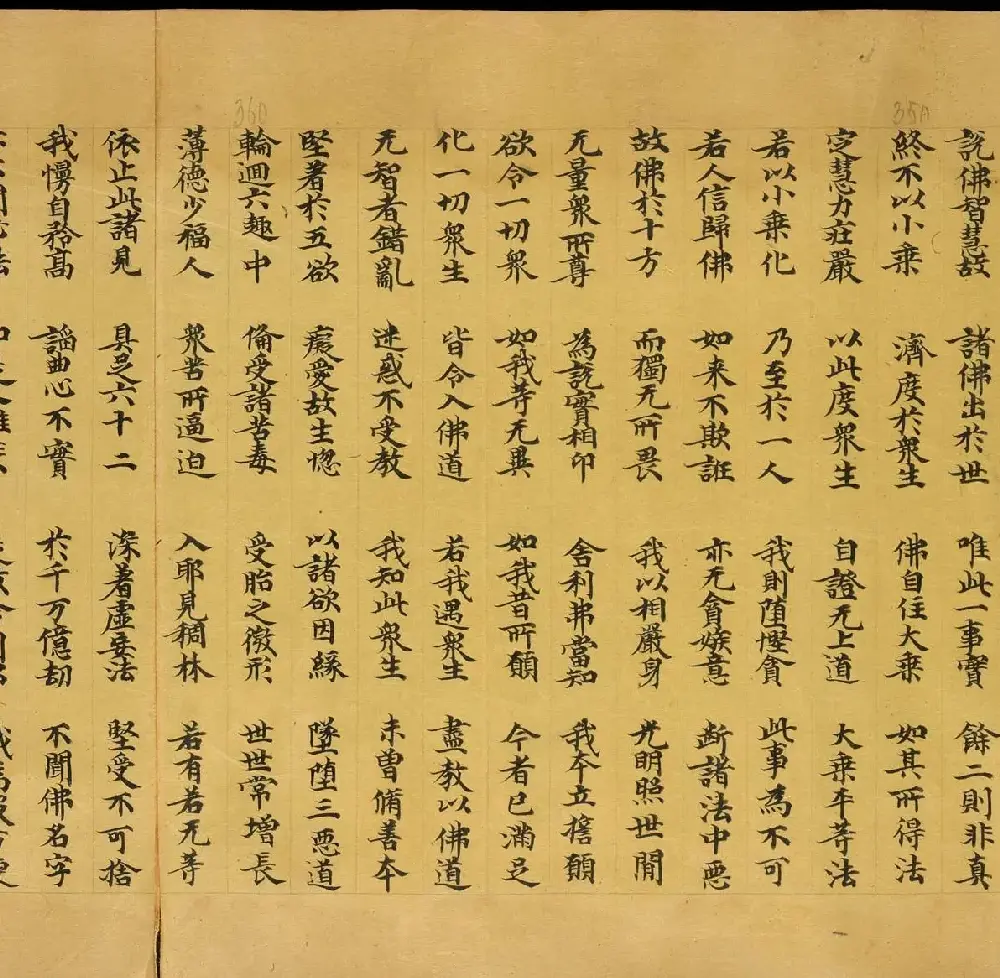 説佛智慧故 諸佛出於世 唯此一事實 餘二則非真
終不以小乘 濟度於衆生 佛自住大乘 如其所得法
定慧力莊嚴 以此度衆生 自證无上道 大乘平等法
若以小乘化 乃至於一人 我則堕慳貪 此事為不可
若人信歸佛 如来不欺誑 亦无貪嫉意 断諸法中惡
故佛於十方 而獨无所畏 我以相嚴身 光明照世間
无量衆所尊 為說實相印 舍利弗當知 我本立誓願
欲令一切衆 如我等无異 如我昔所願 今者已滿足
化一切衆生 皆令入佛道 若我遇衆生 盡教以佛道
无智者錯亂 迷惑不受教 我知此衆生 未曽脩善本
堅著於五欲 癡愛故生惚 以諸欲因緣 墜堕三惡道
輪迴六趣中 備受諸苦毒 受胎之微形 世世常增長
薄德少福人 衆苦所逼迫 入耶見稠林 若有若无等
依止此諸見 具足六十二 深著虛妄法 堅受不可捨
我慢自矜髙 諂曲心不實 於千万億劫 不聞佛名字